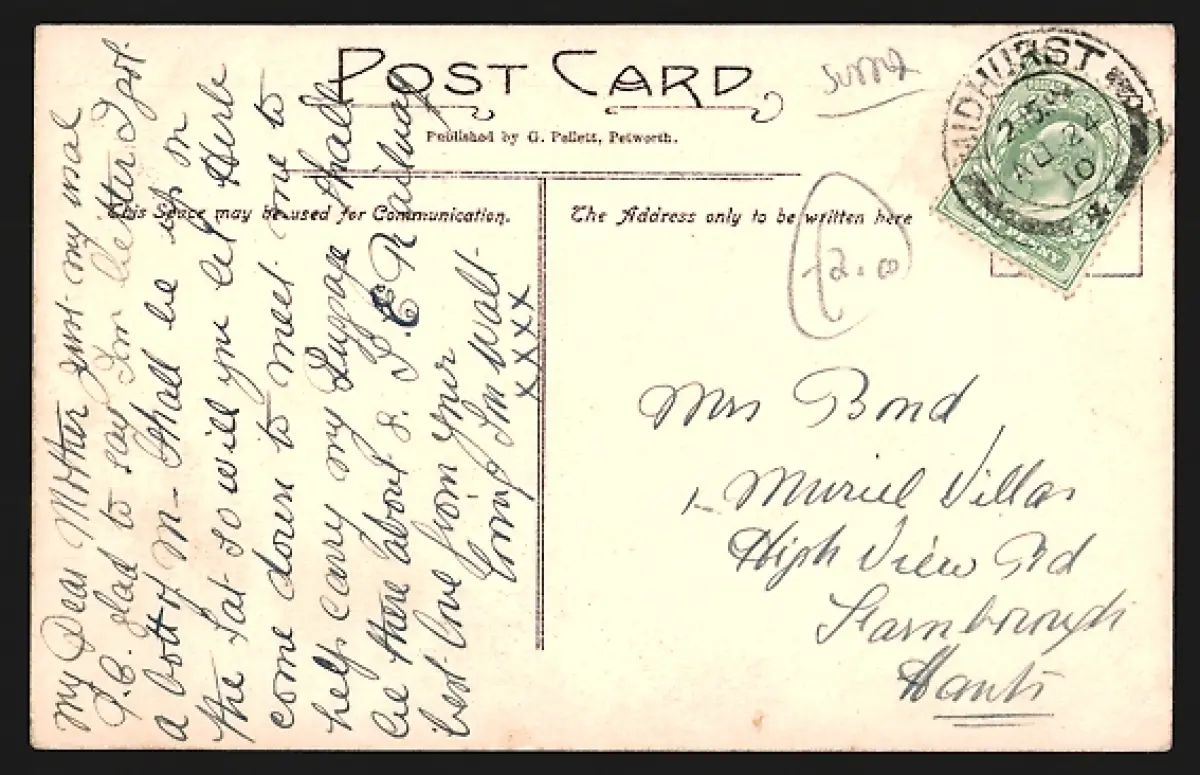 POST CARD
Published by G. Pellett, Petworth.
This Space may be used for Communication.
The Address only to be written here
MIDHURST
2.15 PM
AU 24
10
Sussex
£2.00
My Dear Mother just my usual
P.C. glad to say I'm better I got
a bott of M- Shall be up on
the Sat so will you let Herb
come down to meet me to
help carry my Luggage shall
be there about 8. S.E Railway
best love from your
loving Son Walt-
xxxx
Mrs Bond
1- Muriel Villas
High View Rd
Farnborough
Hants